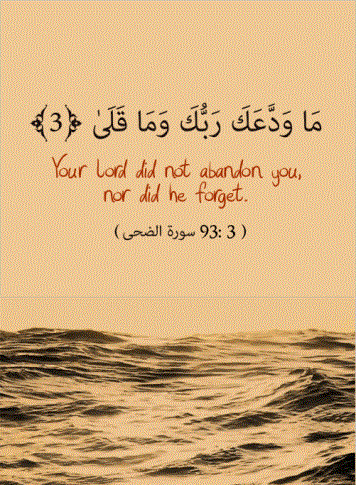 مَا وَدَّعَكَ رَبُّكَ وَمَا قَلَىٰ ﴿3﴾
Your Lord did not abandon you,
nor did he forget.
( 93: 3 سورة الضحى )